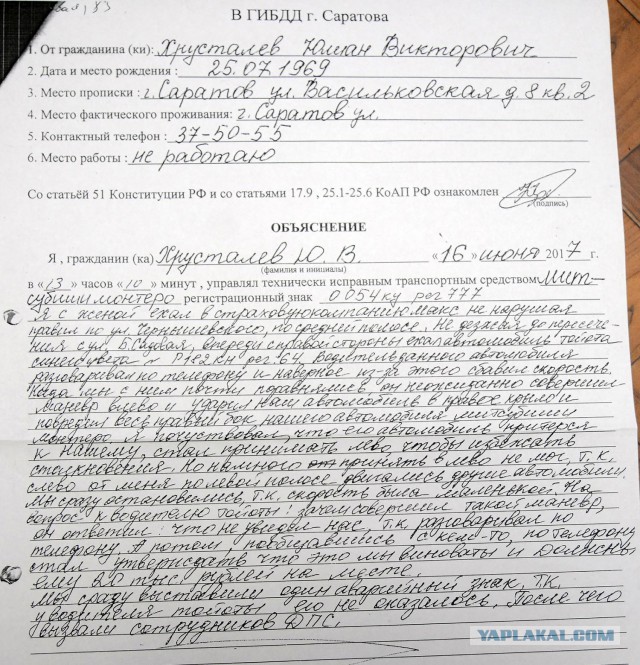 В ГИБДД г. Саратова
1. От гражданина (ки): Хрусталев Юлиан Викторович
2. Дата и место рождения : 25.07.1969
3. Место прописки : г. Саратов ул. Васильковская д 8 кв. 2
4. Место фактического проживания: г. Саратов ул.
5. Контактный телефон : 37-50-55
6. Место работы : не работаю
Со статьёй 51 Конституции РФ и со статьями 17.9 , 25.1-25.6 КоАП РФ ознакомлен
(подпись)
ОБЪЯСНЕНИЕ
Я , гражданин (ка) Хрусталев Ю. В. «16 » июня 2017 г.
(фамилия и инициалы)
в «13 » часов «10 » минут , управлял технически исправным транспортным средством Мит-
субиши монтеро регистрационный знак о 054 ку рег 777
Я с женой ехал в страховую компанию макс не нарушая
правил по ул. Чернышевского, по средней полосе. Не доезжая до пересече-
ния с ул. Б. Садвая, впереди с правой стороны ехал автомобиль тойота
синего цвета рег 64. Водитель данного автомобиля
разговаривал по телефону и наверное из-за этого сбавил скорость.
Когда мы с ним почти поравнялись он неожиданно совершил
маневр влево и ударил наш автомобиль в правое крыло и
повредил весь правый бок нашего автомобиля митсубиши
монтеро. Я почуствовал, что его автомобиль притерся
к нашему, стал принимать лево, чтобы избежать
столкновения. Но намного принять в лево не мог, т.к.
слево от меня по левой полосе двигались другие автомобили.
Мы сразу остановились, т.к. скорость была маленькой. На
вопрос к водителю тойоты: зачем совершил такой маневр,
он ответил: что не увидел нас, т.к. разговаривал по
телефону. А потом, пообщавшись с кем-то, по телефону
стал утверждать что это мы виноваты и должны
ему 20 тыс. рублей на месте.
Мы сразу выставили один аварийный знак, т.к.
у водителя тойоты его не оказалось. После чего
вызвали сотрудников ДПС.
YAPLAKAL.COM